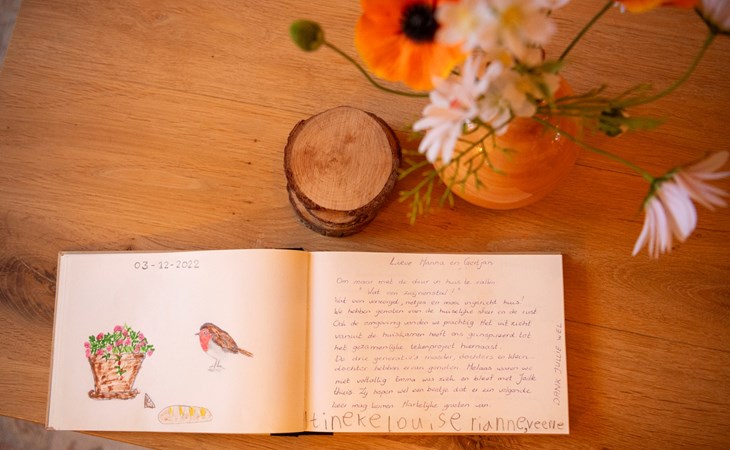 03-12-2022
Lieve Hanna en Gertjan
Om maar met de deur in huis te vallen:
"Wat een
Wat een verzorgd, netjes en mooi ingericht huis!
We hebben genoten van de huiselijke sfeer en de rust.
Ook de omgeving vonden we prachtig. Het uitzicht
vanuit de huiskamer heeft ons geïnspireerd tot
het gezamenlijke tekenproject hiernaast.
De drie generaties moeder, dochters en klein-
dochter hebben ervan genoten. Helaas waren we
niet voltallig. Emma was ziek en bleef met
thuis. Zij hopen wel een broodje dat er een volgende
keer mag komen. Hartelijke groeten van
tineke louise rianne, veerle